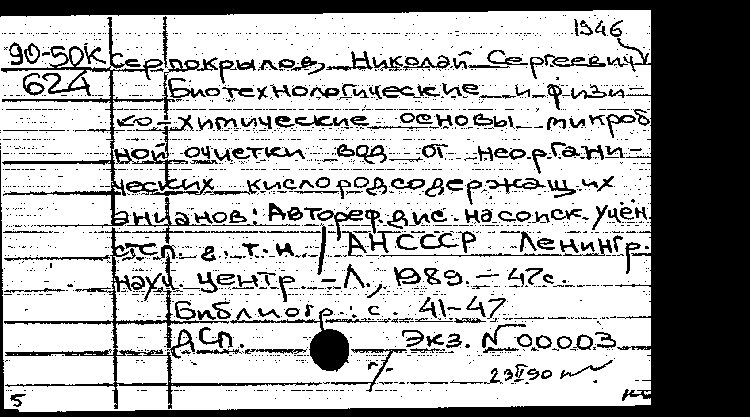 1946
90-50К Серпокрылов, Николай Сергеевич
624 Биотехнологические и физи-
ко-химические основы микроб
ной очистки вод от неоргани-
ческих кислородсодержащих
анианов: Автореф. дис. на соиск. учен.
степ. д. т. н. / АН СССР Ленингр.
науч. центр. - Л., 1989. - 47с.
Библиогр.: с. 41-47
ДСП. Экз. № 00003
5